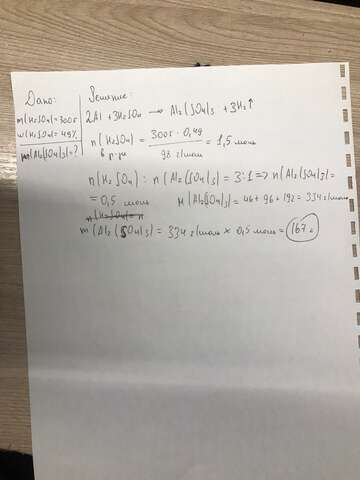 Дано:
m(H₂SO₄)=300г
w(H₂SO₄)=49%
m(Al₂(SO₄)₃)=?
Решение:
2Al + 3H₂SO₄ → Al₂(SO₄)₃ + 3H₂↑
n(H₂SO₄) в р-ри = 300г · 0,49 / 98 г/моль = 1,5 моль
n(H₂SO₄) : n(Al₂(SO₄)₃) = 3:1 => n(Al₂(SO₄)₃)=
= 0,5 моль M(Al₂(SO₄)₃)=46+96+192=334 г/моль
m(Al₂(SO₄)₃) = 334 г/моль × 0,5 моль = 167 г